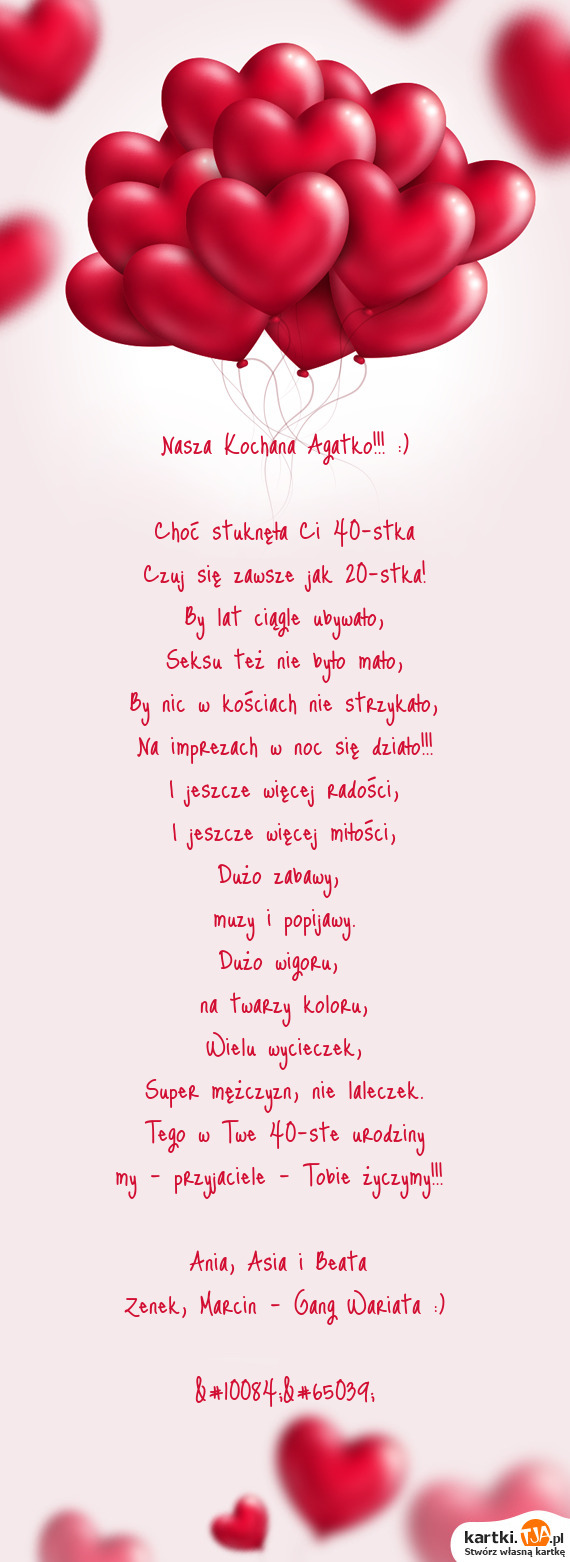 Nasza Kochana Agatko!!! :)
Choć stuknęła Ci 40-stka
Czuj się zawsze jak 20-stka!
By lat ciągle ubywało,
Seksu też nie było mało,
By nic w kościach nie strzykało,
Na imprezach w noc się działo!!!
I jeszcze więcej radości,
I jeszcze więcej miłości,
Dużo zabawy,
muzy i popijawy.
Dużo wigoru,
na twarzy koloru,
Wielu wycieczek,
Super mężczyzn, nie laleczek.
Tego w Twe 40-ste urodziny
my - przyjaciele - Tobie życzymy!!!
Ania, Asia i Beata
Zenek, Marcin - Gang Wariata :)
&#10084;&#65039;
kartki.TJA.pl
Stwórz własną kartkę